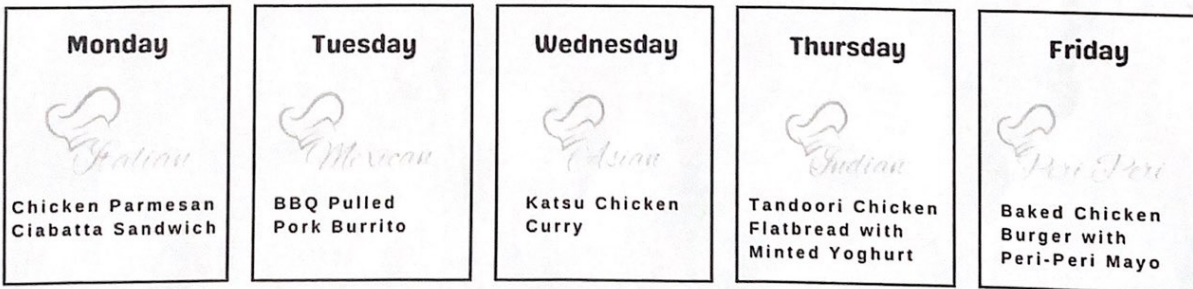 Monday
Italian
Chicken Parmesan
Ciabatta Sandwich
Tuesday
Mexican
BBQ Pulled
Pork Burrito
Wednesday
Asian
Katsu Chicken
Curry
Thursday
Indian
Tandoori Chicken
Flatbread with
Minted Yoghurt
Friday
Peri Peri
Baked Chicken
Burger with
Peri-Peri Mayo